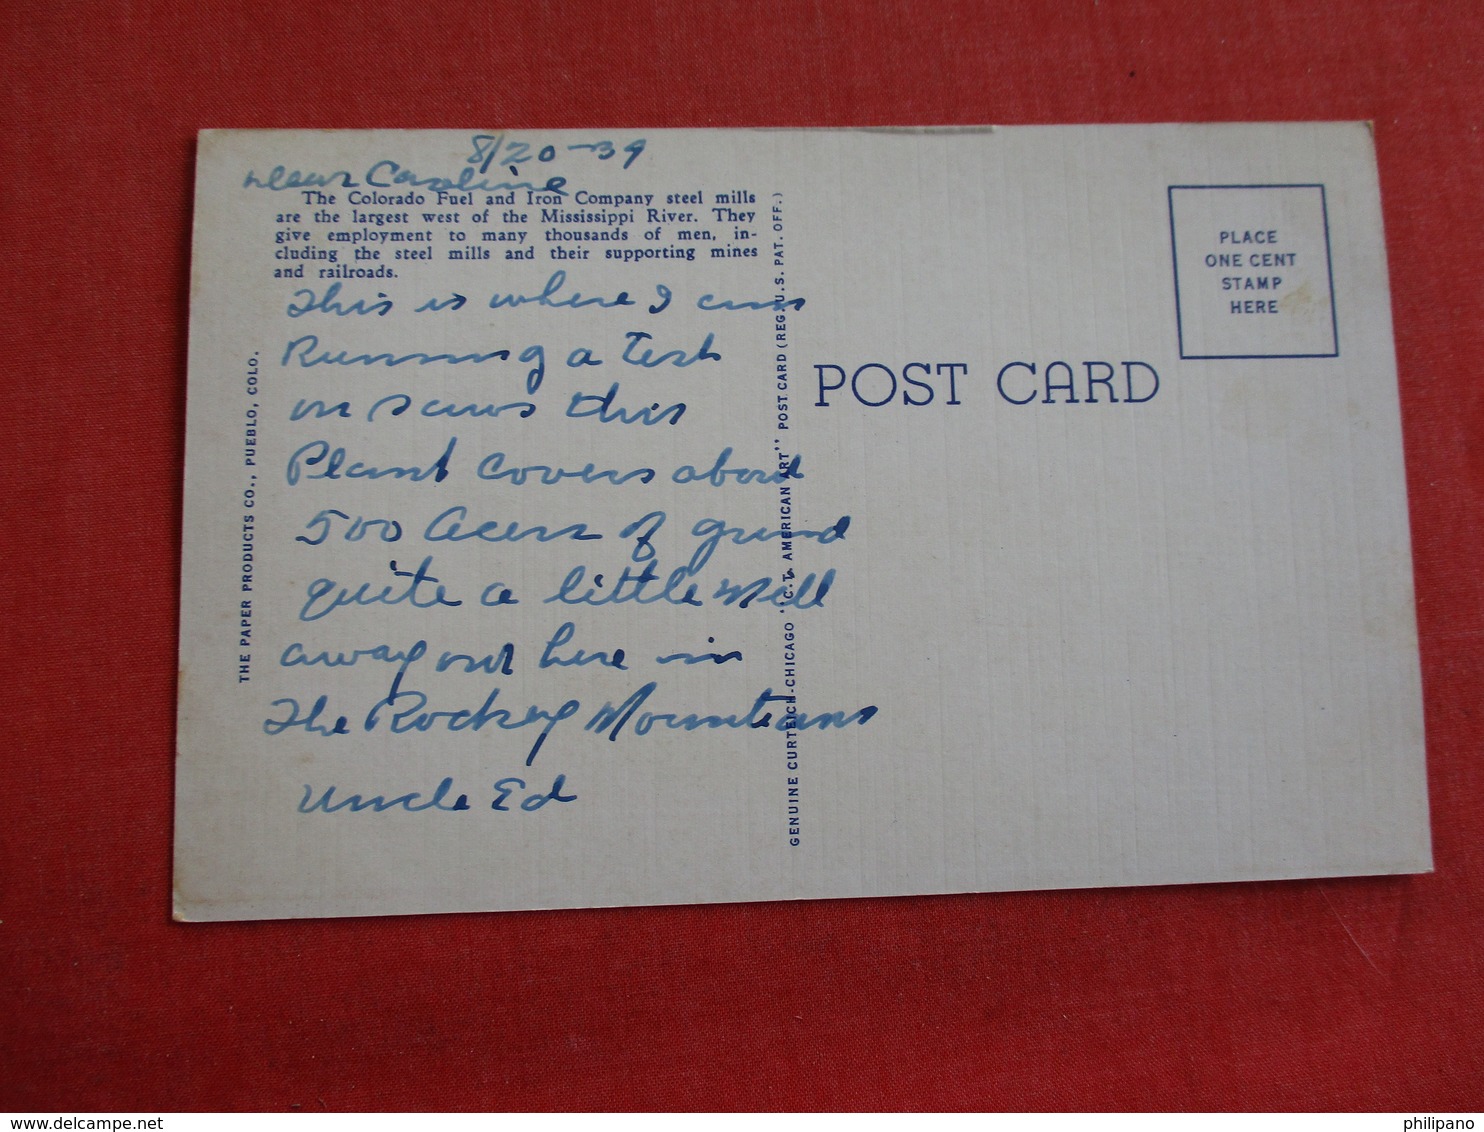 8/20-39
Dear Caroline
The Colorado Fuel and Iron Company steel mills
are the largest west of the Mississippi River. They
give employment to many thousands of men, in-
cluding the steel mills and their supporting mines
and railroads.
This is where I am
Running a test
on saws this
Plant covers about
500 Acers of ground
quite a little mill
away out here in
The Rockey Mountians
Uncle Ed
THE PAPER PRODUCTS CO., PUEBLO, COLO.
GENUINE CURTEICH-CHICAGO "C.T. AMERICAN ART" POST CARD (REG. U.S. PAT. OFF.)
POST CARD
PLACE
ONE CENT
STAMP
HERE
www.delcampe.net
philipano